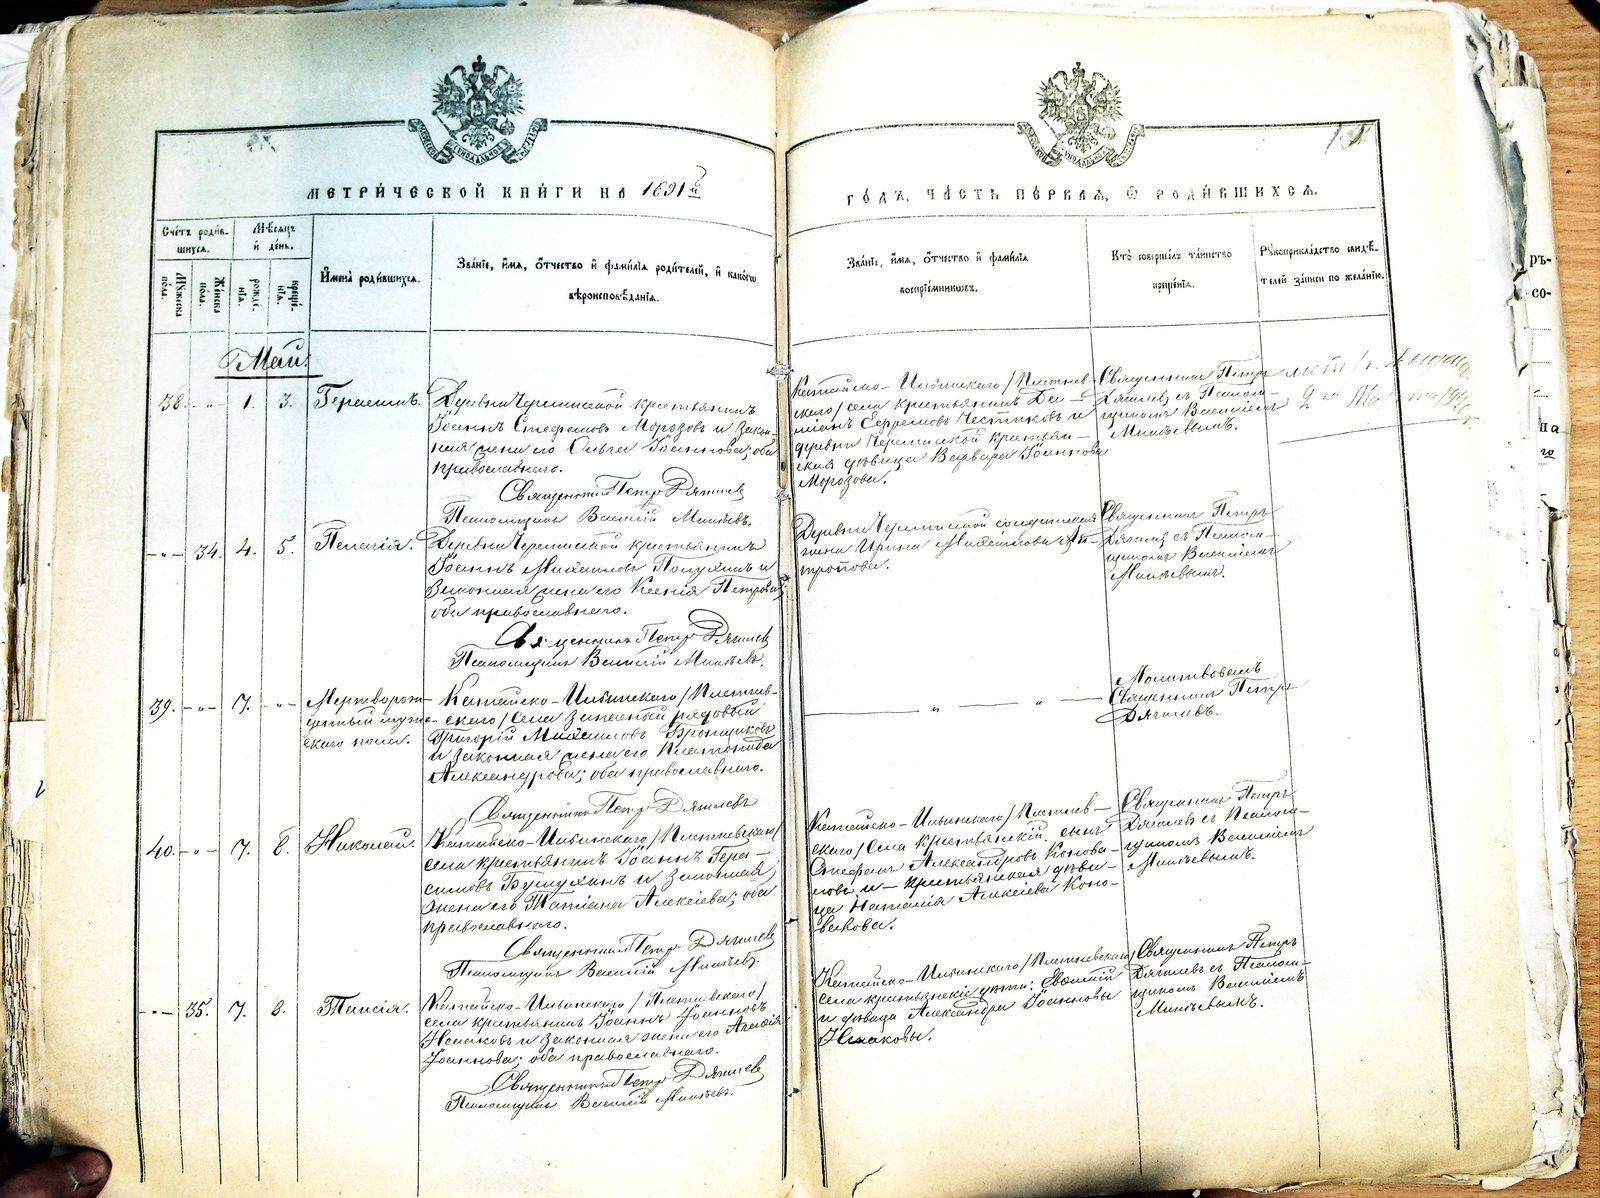 МЕТРИЧЕСКОЙ КНИГИ НА 1891й
ГОДЪ, ЧАСТЬ ПЕРВАЯ, Ѿ РОДИВШИХСЯ.
Счетъ родив-
шихся.
Мужеска пола.
Женска пола.
Мѣсяцъ
и день.
рожде-
нія.
креще-
нія.
Имена родившихся.
Званіе, имя, отчество и фамилія родителей, и какого
вѣроисповѣданія.
Званіе, имя, отчество и фамилія
воспріемниковъ.
Кто совершалъ таинство
крещенія.
Рукоприкладство свидѣ-
телей записи по желанію.
Май.
38. -„- 1. 3. Герасимъ.
Деревни Черемисской крестьянинъ
Іоаннъ Стефановъ Морозовъ и закон-
ная жена его Ольга Іоаннова; оба
православнаго.
Священникъ Петръ Дягилев
Псаломщикъ Василій
Катайско-Ильинскаго /Плетнев-
скаго/ села крестьянинъ Да-
міанъ Ефремовъ Честиковъ и
деревни Черемисской крестьян-
ская дѣвица Варвара Іоаннова
Морозова.
Священникъ Петръ
Дягилевъ съ Псалом-
щикомъ Василіемъ
-„- 34. 4. 5. Пелагія.
Деревни Черемисской крестьянинъ
Іоаннъ Михаиловъ и
законная жена его Ксенія Петрова;
оба православнаго.
Священникъ Петръ Дягилев
Псаломщикъ Василій
Деревни Черемисской солдатская
жена Ирина Михаилова Ан-
тропова.
Священникъ Петръ
Дягилевъ съ Псалом-
щикомъ Василіемъ
39. -„- 7. -„- Мертворож-
денный муже-
скаго пола.
Катайско-Ильинскаго /Плетнев-
скаго/ села запасный рядовый
Григорій Михаиловъ Бронниковъ
и законная жена его Платонида
Александрова; оба православнаго.
Священникъ Петръ Дягилевъ
„ „
Молитвовалъ
Священникъ Петръ
Дягилевъ.
40. -„- 7. 8. Николай.
Катайско-Ильинскаго /Плетневскаго/
села крестьянинъ Іоаннъ Гера-
симовъ и законная
жена его Татіана Алексіева; оба
православнаго.
Священникъ Петръ Дягилев
Псаломщикъ Василій
Катайско-Ильинскаго /Плетнев-
скаго/ села крестьянскій сынъ
Стефанъ Александровъ Конова-
ловъ и крестьянская дѣви-
ца Наталія Алексіева Коно-
валова.
Священникъ Петръ
Дягилевъ съ Псалом-
щикомъ Василіемъ
-„- 35. 7. 8. Таисія.
Катайско-Ильинскаго /Плетневскаго/
села крестьянинъ Іоаннъ Іоанновъ
и законная жена его
Іоаннова; оба православнаго.
Священникъ Петръ Дягилев
Псаломщикъ Василій
Катайско-Ильинскаго /Плетневскаго/
села крестьянскіе дѣти:
и дѣвица Александра Іоанновы
Священникъ Петръ
Дягилевъ съ Псалом-
щикомъ Василіемъ
ръ-
со-
на
го